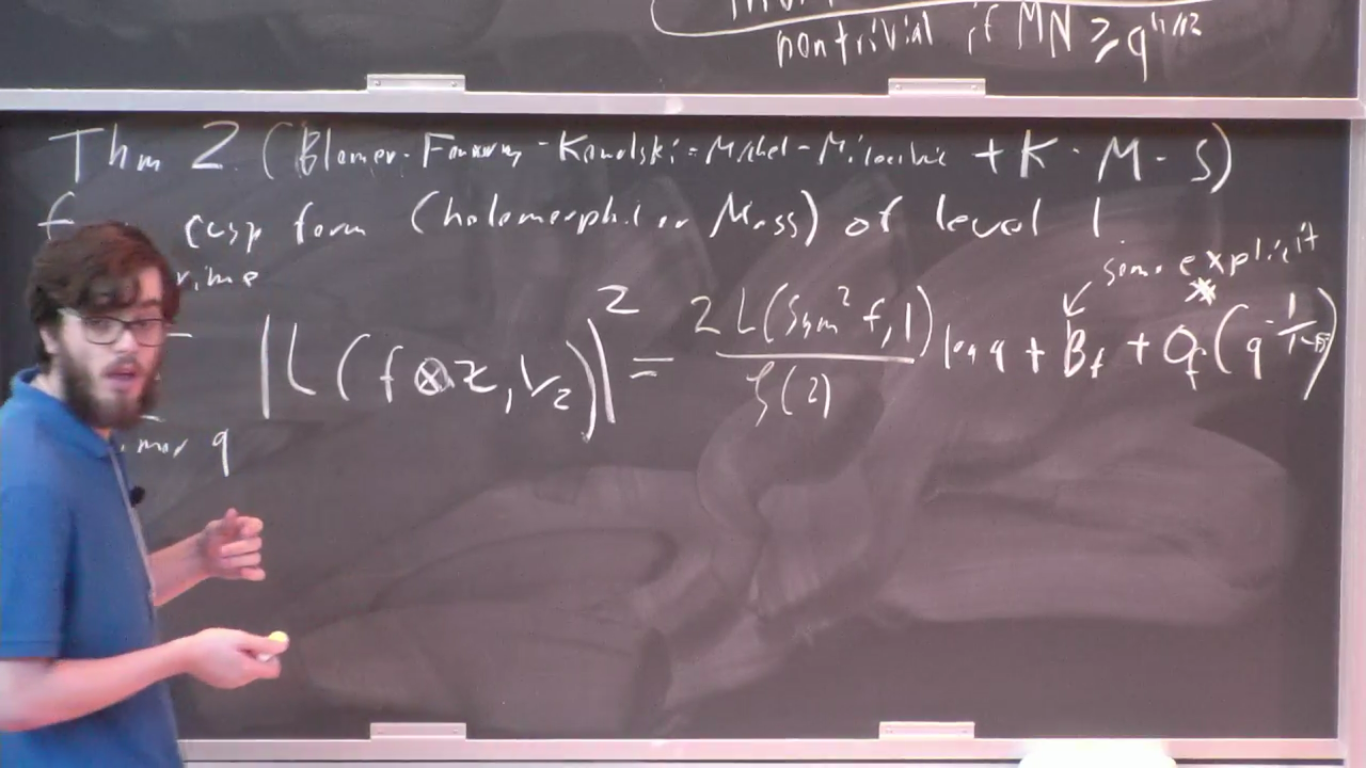 nontrivial if MN ≥ q^{11/12}
Thm 2 (Blomer-Fouvry-Kowalski-Michel-Milicevic + K-M-S)
f cusp form (holomorphic or Maass) of level 1
rime
some explicit
|L(f⊗χ, 1/2)|^2 = \frac{2 L(Sym^2 f, 1)}{ζ(2)} log q + B_f + O_f(q^{-1/
mod q